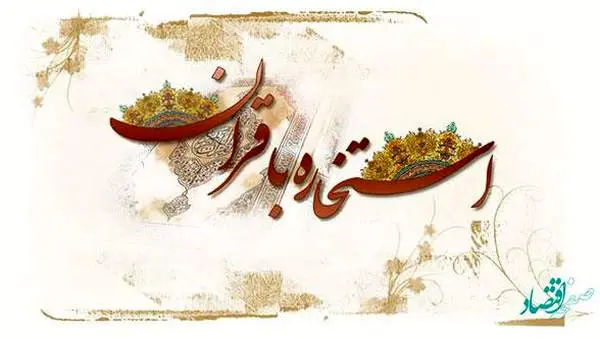 استخاره با قرآن
صدای اقتصاد